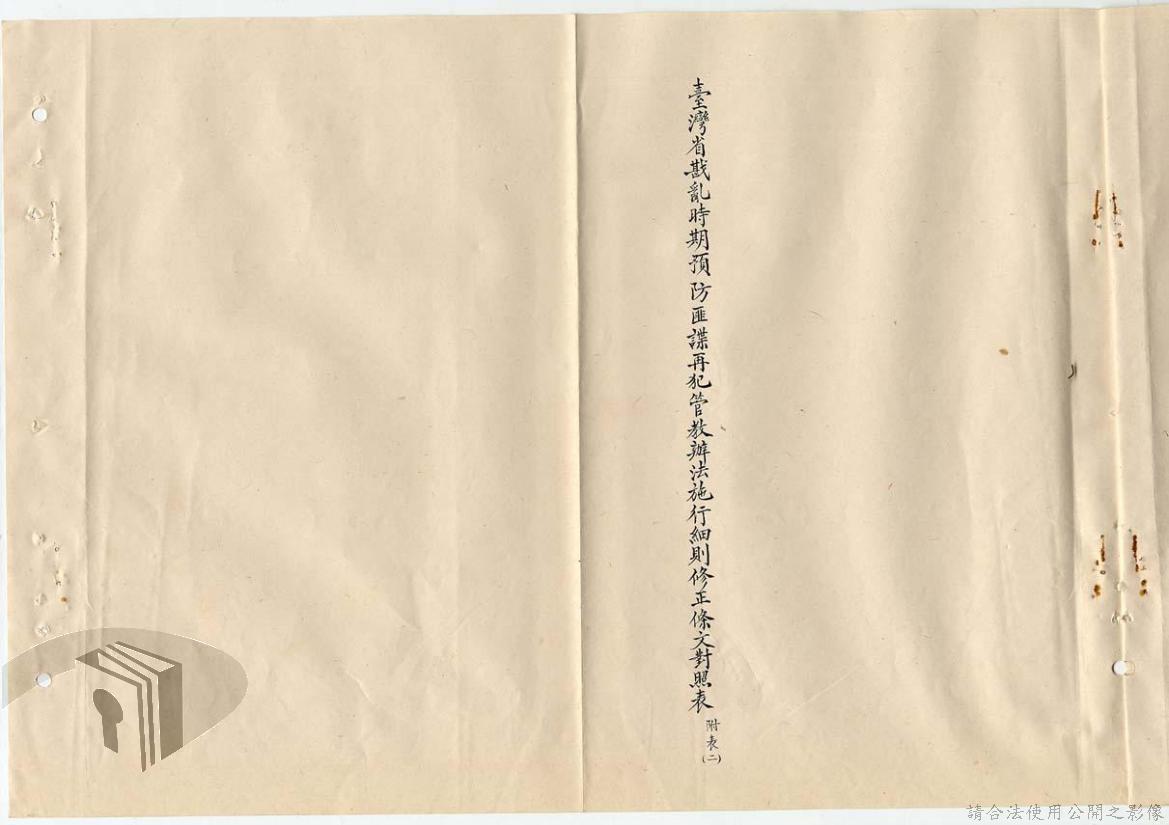 臺灣省戡亂時期預防匪諜再犯管教辦法施行細則修正條文對照表
附表(二)
請合法使用公開之影像